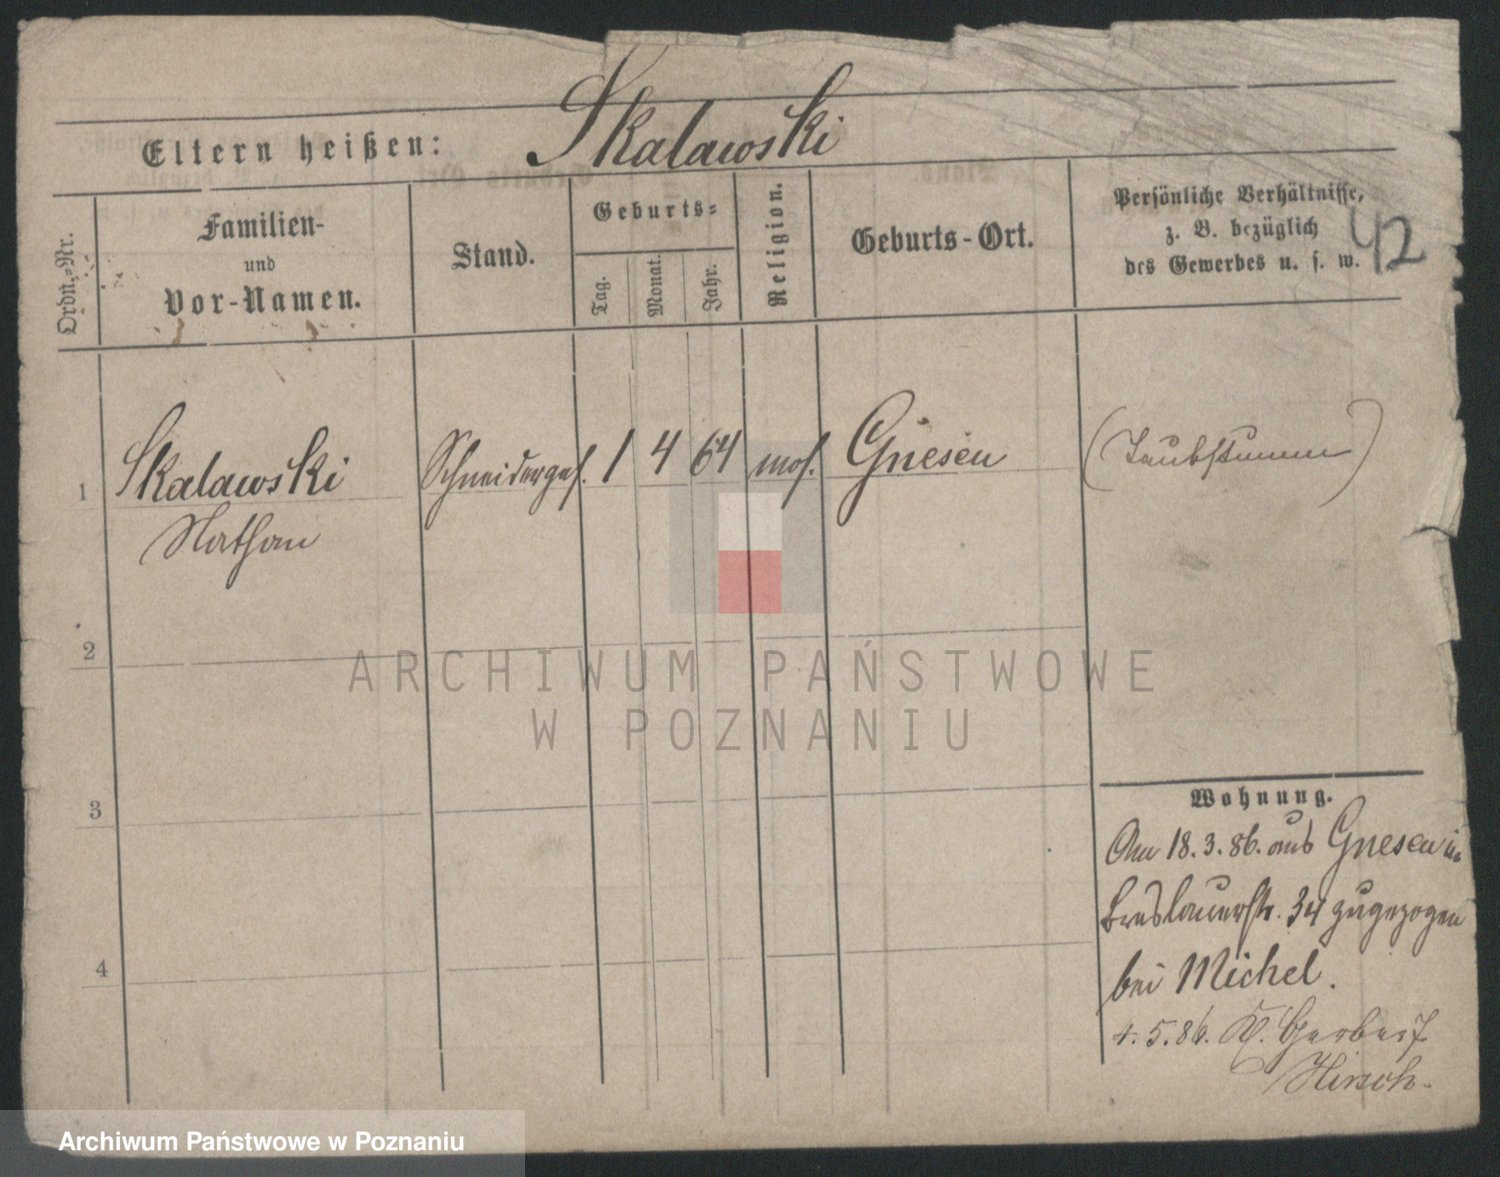 Skalawski
Eltern heißen:
Ordn.-Nr.
Familien-
und
Vor-Namen.
Stand.
Geburts-
Tag.
Monat.
Jahr.
Religion.
Geburts-Ort.
Persönliche Verhältnisse,
z. B. bezüglich
des Gewerbes u. s. w.
42
1 Skalawski Schneiderges. 1 4 64 mos. Gnesen (Taubstumm)
Nathan
2
3
4
Wohnung.
Am 18.3.86. aus Gnesen in
Breslauerstr. 34 zugezogen
bei Michel.
4.5.86. Kl. Gerberst.
Hirsch.
ARCHIWUM PAŃSTWOWE
W POZNANIU
Archiwum Państwowe w Poznaniu